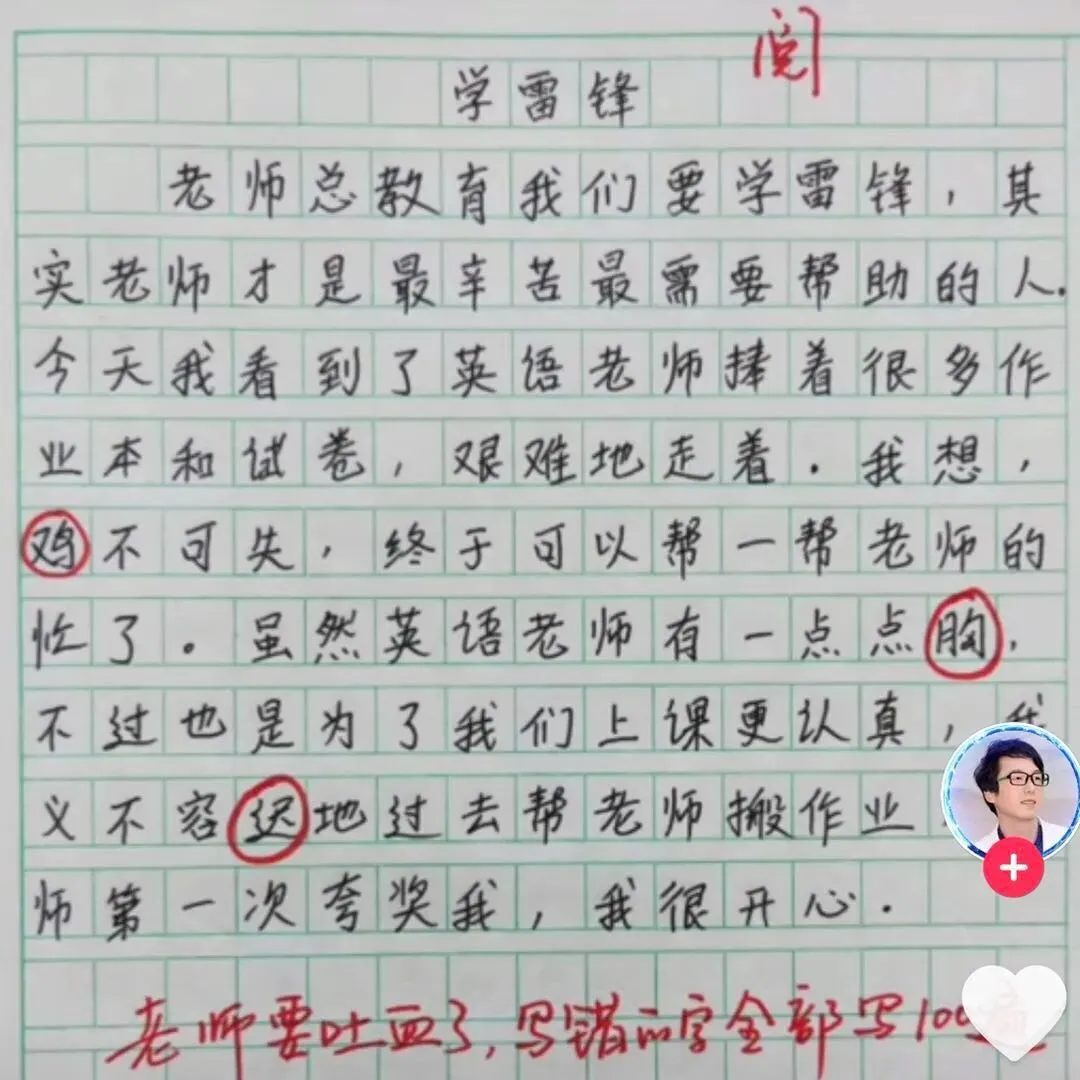 阅
学雷锋
老师总教育我们要学雷锋，其
实老师才是最辛苦最需要帮助的人.
今天我看到了英语老师捧着很多作
业本和试卷，艰难地走着.我想，
鸡不可失，终于可以帮一帮老师的
忙了。虽然英语老师有一点点胸，
不过也是为了我们上课更认真，我
义不容迟地过去帮老师搬作业
师第一次夸奖我，我很开心.
老师要吐血了,写错的字全部写100